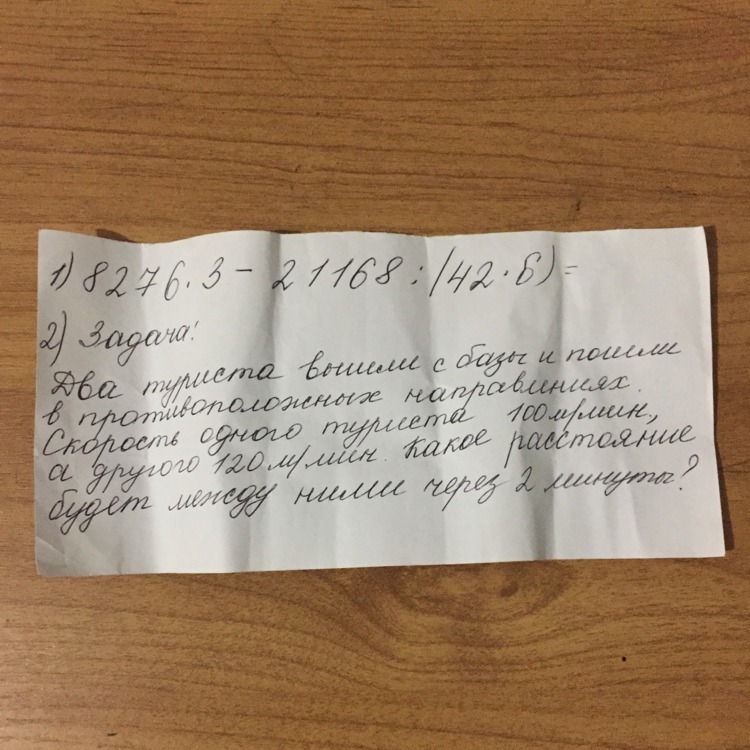 1) 8276 · 3 - 21168 : (42 · 6) =
2) Задача!
Два туриста вышли с базы и пошли
в противоположных направлениях.
Скорость одного туриста 100м/мин.,
а другого 120м/мин. Какое расстояние
будет между ними через 2 минуты?